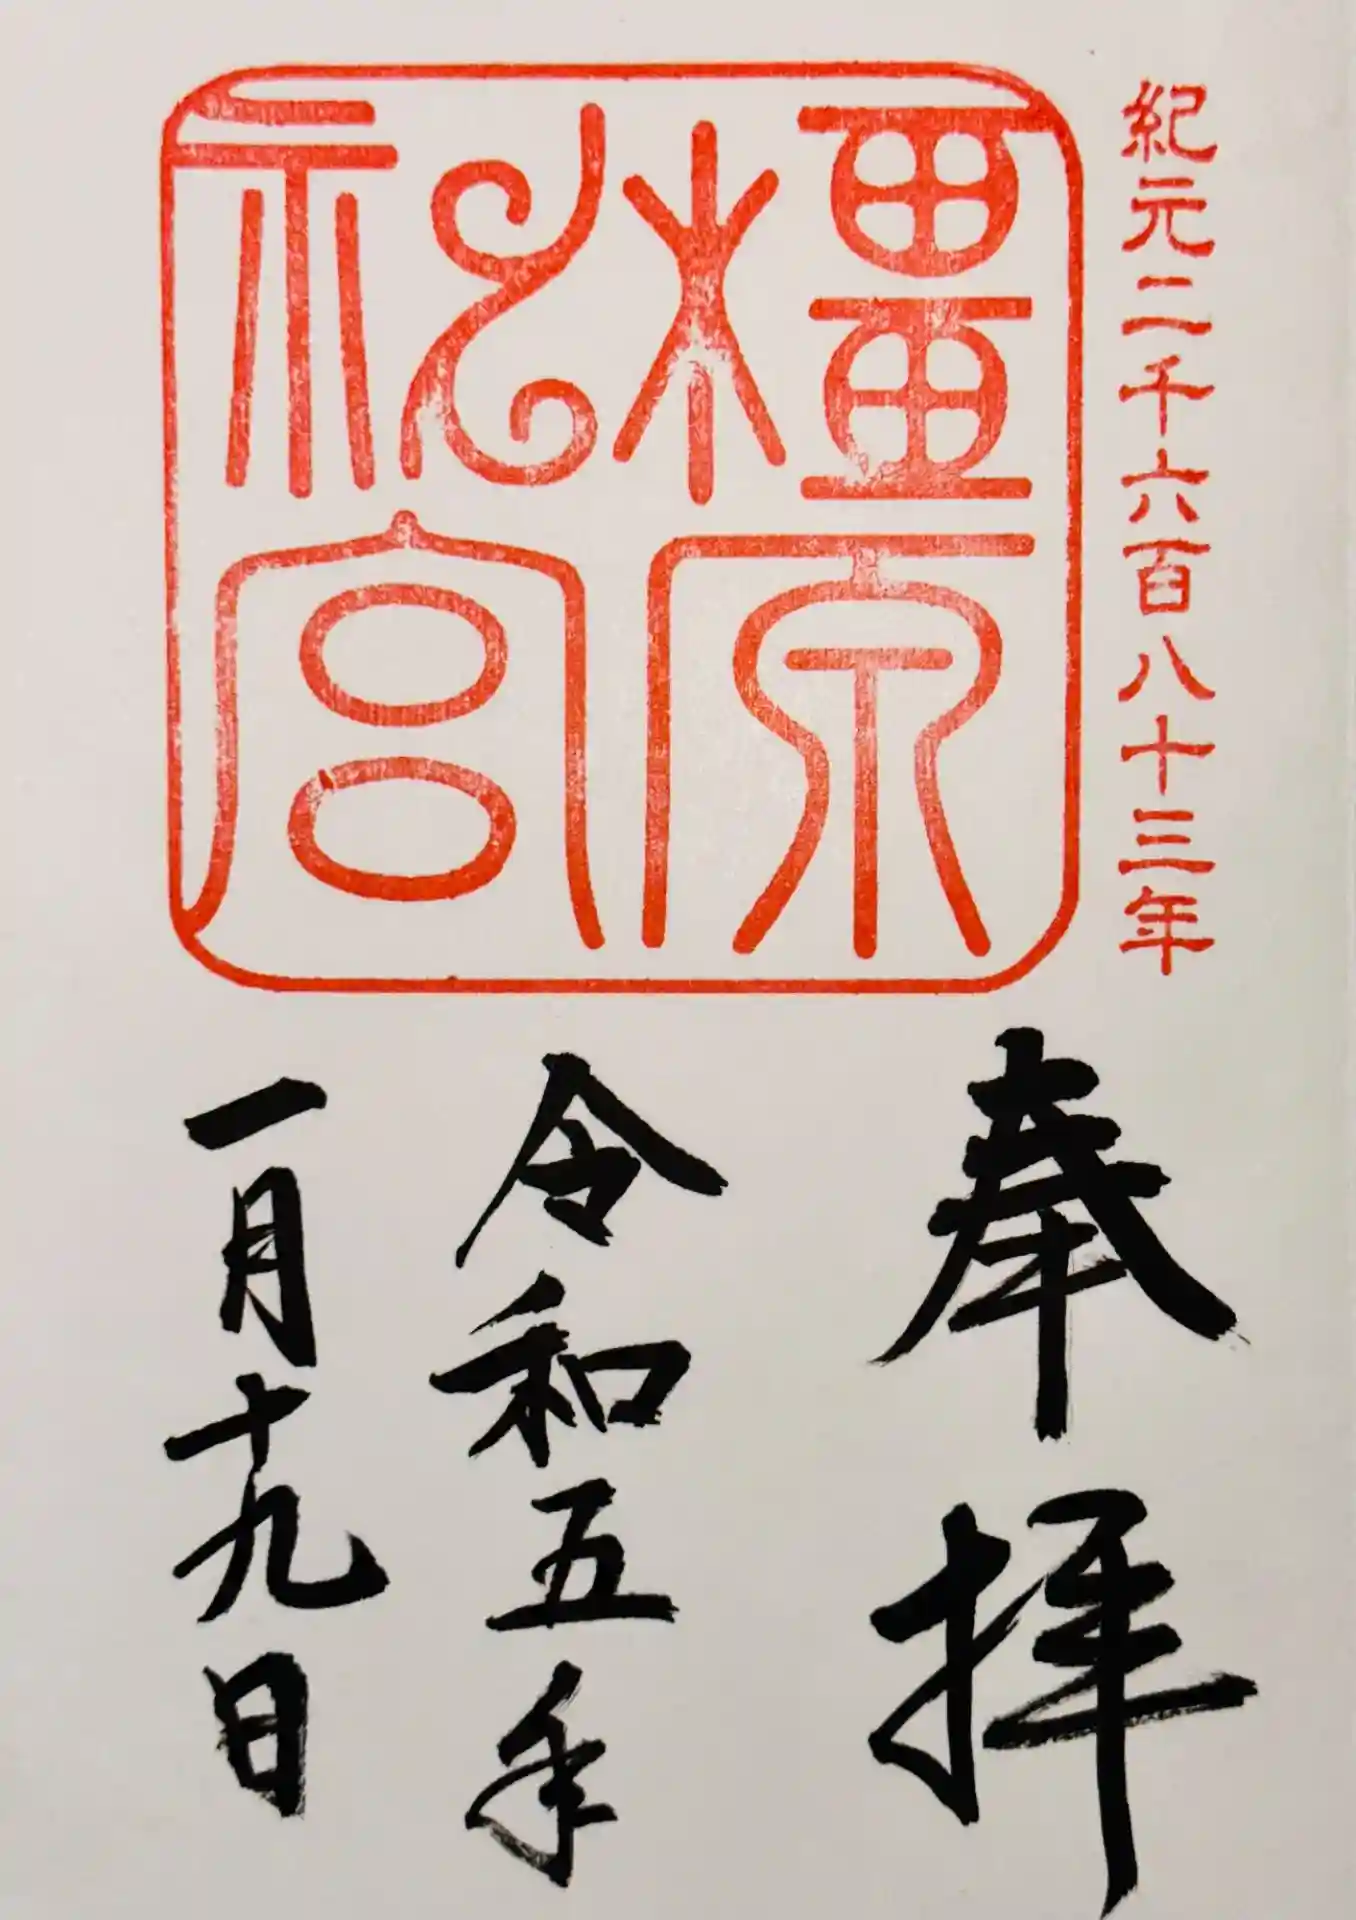 紀元二千六百八十三年
橿原
神宮
奉拝
令和五年
一月十九日